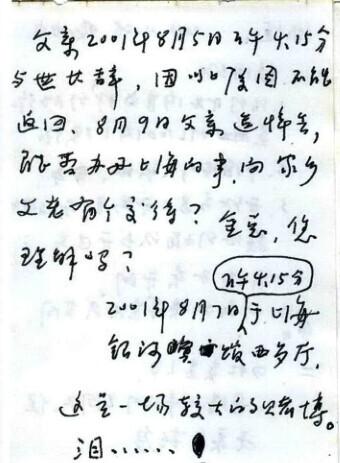 父亲2001年8月5日下午4.15分
与世长辞，因 原因不能
返回，8月9日父亲追悼会，
既要办好上海的事，向家乡
父老有个交待？ 您
理解吗？
下午4.15分
2001年8月7日于上海
银河宾 西多厅，
这是一场较大的赌博。
泪……